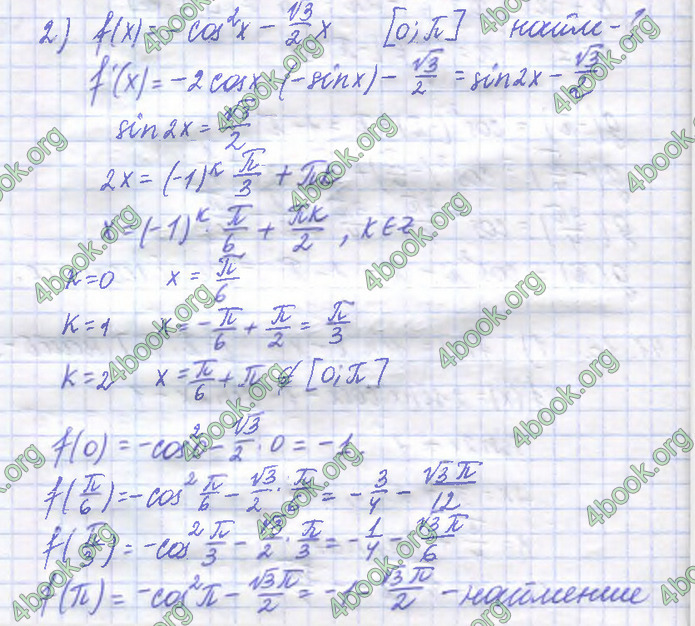 2) f(x) = -cos²x - √3/2 x [0; π] найм - ?
f'(x) = -2cosx · (-sinx) - √3/2 = sin2x - √3/2
sin2x = √3/2
2x = (-1)^k π/3 + πk
x = (-1)^k · π/6 + πk/2, k∈Z
k=0 x = π/6
k=1 x = -π/6 + π/2 = π/3
k=2 x = π/6 + π ∉ [0; π]
f(0) = -cos² - √3/2 · 0 = -1
f(π/6) = -cos² π/6 - √3/2 · π/6 = -3/4 - √3π/12
f(π/3) = -cos² π/3 - √3/2 · π/3 = -1/4 - √3π/6
f(π) = -cos²π - √3π/2 = -1 - √3π/2 - найменше
4book.org